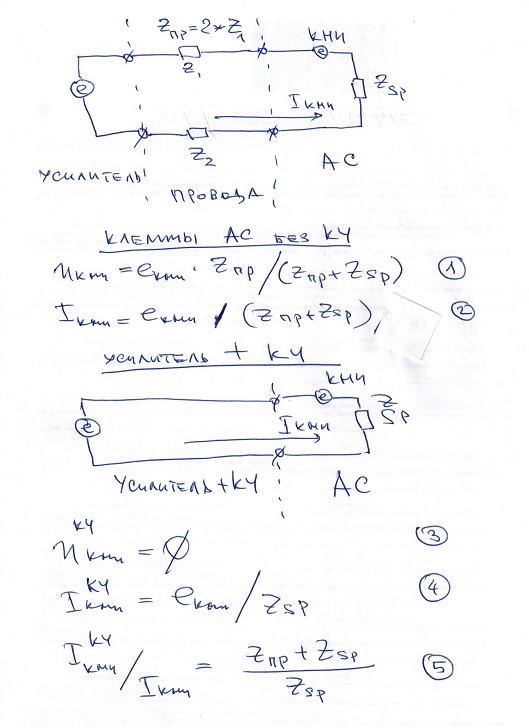 Zпр=2*Z1
Z1
КНИ
e
e
Zsp
Iкни
Z2
УСИЛИТЕЛЬ
ПРОВОДА
АС
КЛЕММЫ АС БЕЗ КЧ
Uкни = eкни · Zпр / (Zпр+Zsp) ①
Iкни = eкни / (Zпр+Zsp), ②
УСИЛИТЕЛЬ + КЧ
КНИ
e
e
Zsp
Iкни
УСИЛИТЕЛЬ+КЧ
АС
Uкни^КЧ = ∅ ③
Iкни^КЧ = eкни / Zsp ④
Iкни^КЧ / Iкни = (Zпр + Zsp) / Zsp ⑤